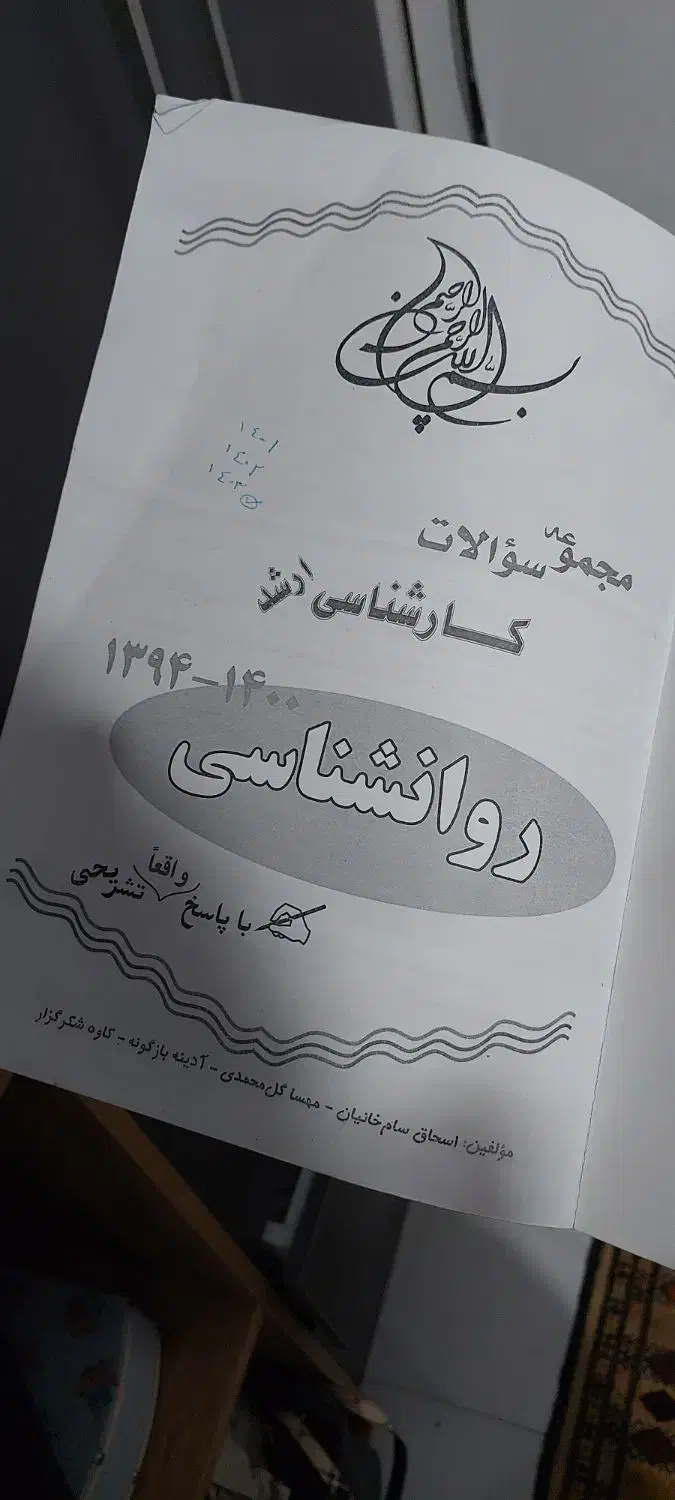 بسم الله الرحمن الرحیم
۱۴۰۱
۱۴۰۲
۱۴۰۳
مجموعه سؤالات
کارشناسی ارشد
۱۳۹۴-۱۴۰۰
روانشناسی
با پاسخ واقعاً تشریحی
مؤلفین: اسحاق سام‌خانیان - مهسا گل‌محمدی - آدینه بازگونه - کاوه شکرگزار